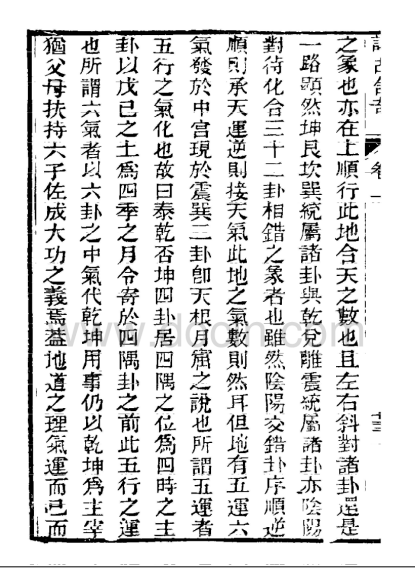 之象也亦在上順行此地合天之數也且左右斜對諸卦還是
一路顯然坤艮坎巽統屬諸卦與乾兌離震統屬諸卦亦陰陽
對待化合三十二卦相錯之象者也雖然陰陽交錯卦序順逆
順則承天運逆則接天氣此地之氣數則然耳但地有五運六
氣發於中宮現於震巽二卦卽天根月窟之說也所謂五運者
五行之氣化也故曰泰乾否坤四卦居四隅之位爲四時之主
卦以戊己之土爲四季之月令寄於四隅卦之前此五行之運
也所謂六氣者以六卦之中氣代乾坤用事仍以乾坤爲主宰
猶父母扶持六子佐成大功之義焉葢地道之理氣運而已而